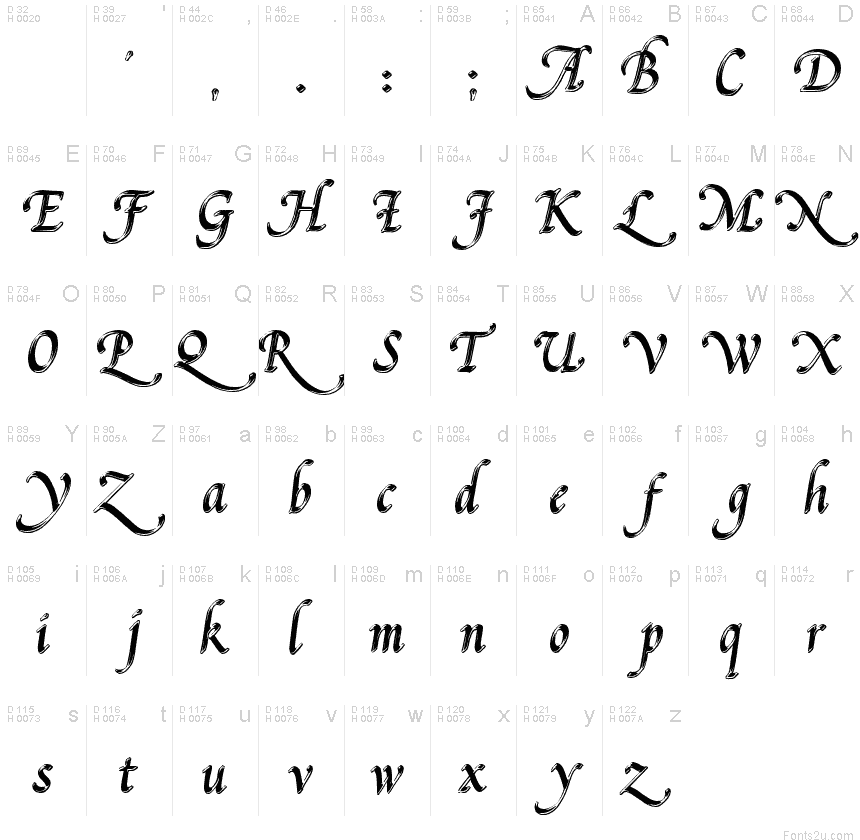 D 32 D 39 ' D 44 , D 46 . D 58 : D 59 ; D 65 A D 66 B D 67 C D 68 D
H 0020 H 0027 H 002C H 002E H 003A H 003B H 0041 H 0042 H 0043 H 0044
' , . : ; A B C D
D 69 E D 70 F D 71 G D 72 H D 73 I D 74 J D 75 K D 76 L D 77 M D 78 N
H 0045 H 0046 H 0047 H 0048 H 0049 H 004A H 004B H 004C H 004D H 004E
E F G H I J K L M N
D 79 O D 80 P D 81 Q D 82 R D 83 S D 84 T D 85 U D 86 V D 87 W D 88 X
H 004F H 0050 H 0051 H 0052 H 0053 H 0054 H 0055 H 0056 H 0057 H 0058
O P Q R S T U V W X
D 89 Y D 90 Z D 97 a D 98 b D 99 c D 100 d D 101 e D 102 f D 103 g D 104 h
H 0059 H 005A H 0061 H 0062 H 0063 H 0064 H 0065 H 0066 H 0067 H 0068
Y Z a b c d e f g h
D 105 i D 106 j D 107 k D 108 l D 109 m D 110 n D 111 o D 112 p D 113 q D 114 r
H 0069 H 006A H 006B H 006C H 006D H 006E H 006F H 0070 H 0071 H 0072
i j k l m n o p q r
D 115 s D 116 t D 117 u D 118 v D 119 w D 120 x D 121 y D 122 z
H 0073 H 0074 H 0075 H 0076 H 0077 H 0078 H 0079 H 007A
s t u v w x y z
Fonts2u.com